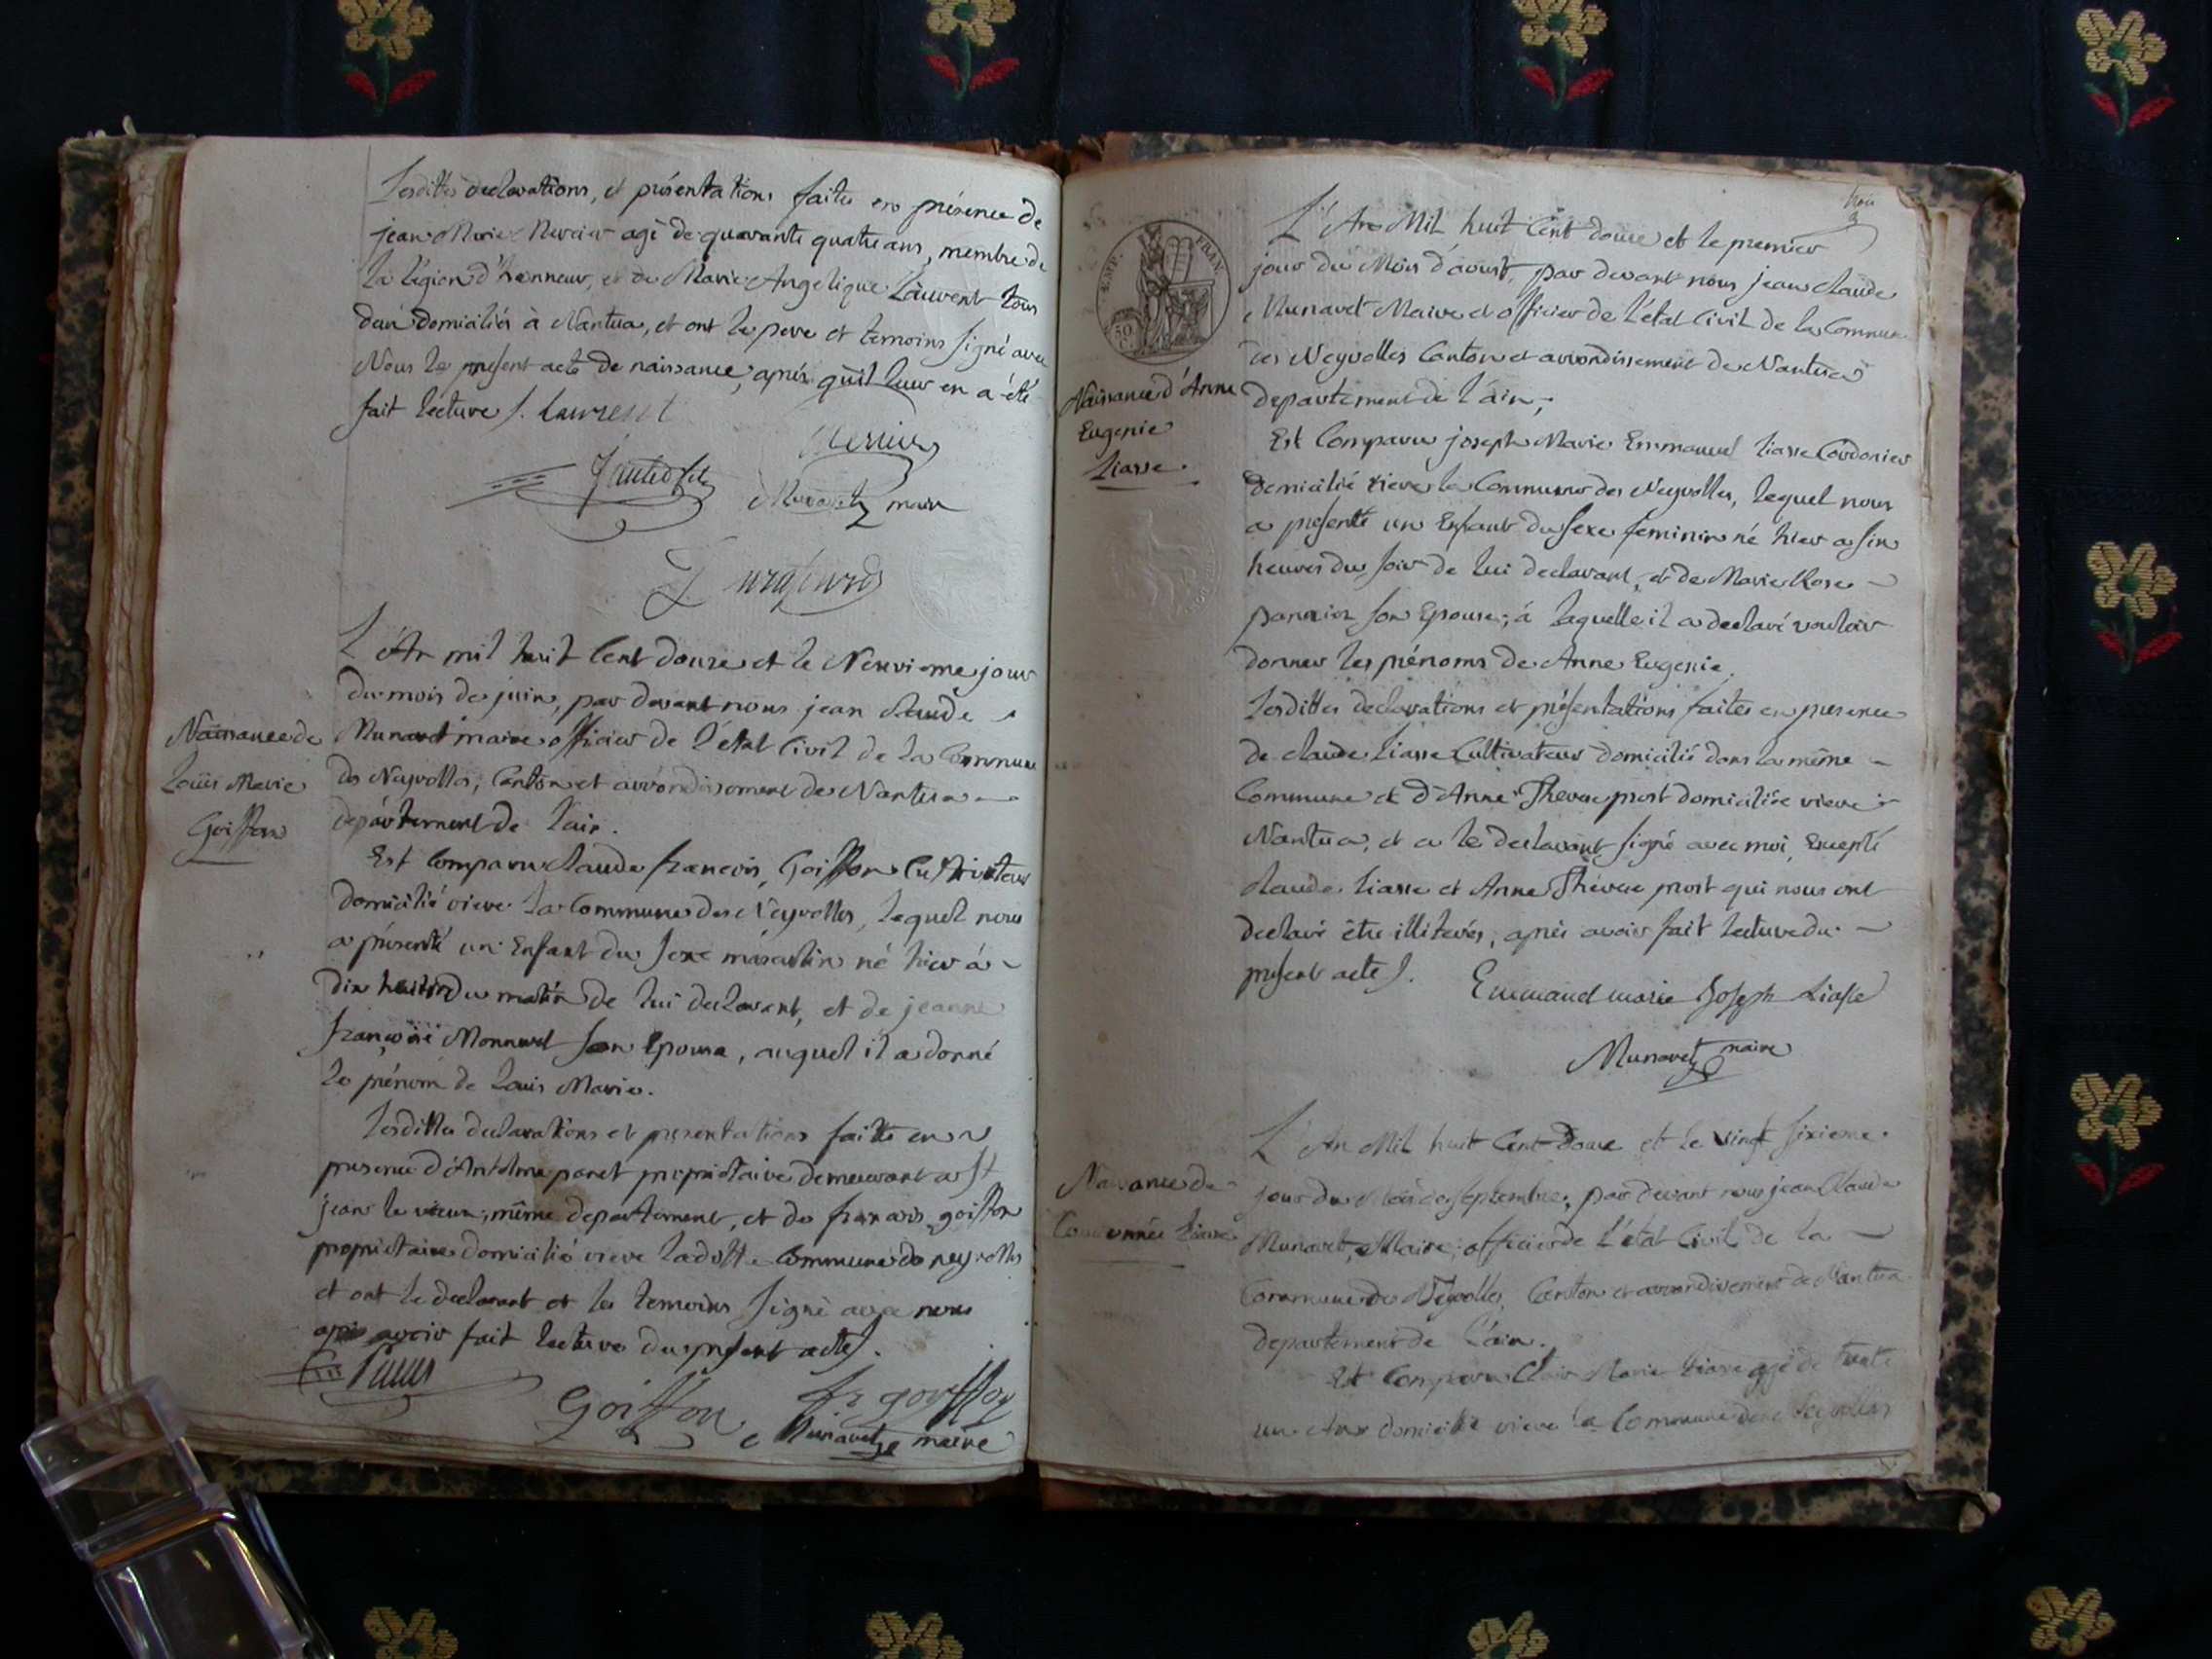 Lesdittes declarations, et présentations faites en présence de
jean Marie Mercier agé de quarante quatre ans, membre de
la légion d'honneur, et de Marie Angelique Laurent tous
deux domiciliés à Nantua, et ont le pere et temoins signé avec
Nous le present acte de naissance, après qu'il leur en a été
fait lecture /. Laurent
Mercier
Munaret maire
L'An mil huit Cent douze et le Neuvieme jour
du mois de juin, par devant nous jean Claude
Munaret maire officier de l'état Civil de la Commune
des Neyrolles, Canton et arrondissement de Nantua
département de l'ain.
Naissance de
Louis Marie
Goiffon
Est Comparu Claude françois Goiffon Cultivateur
domicilié rière la Commune des Neyrolles, lequel nous
a présenté un Enfant du sexe masculin né hier à
dix heures du matin de lui declarant, et de jeanne
françoise Monnaret son Epouse, auquel il a donné
le prénom de Louis Marie.
Lesdittes declarations et presentations faittes en
presence d'Anthelme ponet propriétaire demeurant a St
jean le vieux, même departement, et de françois goiffon
propriétaire domicilié rière laditte Commune de neyrolles
et ont le declarant et les temoins signé avec nous
après avoir fait lecture du present acte /.
Goiffon fr goiffon
Munaret maire
trois
3
EMP. FRAN.
50
C.
L'An Mil huit Cent douze et le premier
jour du Mois d'aoust, par devant nous jean Claude
Munaret Maire et officier de l'état Civil de la Commune
des Neyrolles Canton et arrondissement de Nantua
departement de l'ain;
Naissance d'Anne
Eugenie
Liasse.
Est Comparu joseph Marie Emmanuel Liasse Cordonier
domicilié rière la Commune des Neyrolles, lequel nous
a presenté un Enfant du sexe feminin né hier a six
heures du soir de lui declarant, et de Marie Rose
son Epouse; à laquelle il a declaré vouloir
donner les prénoms de Anne Eugenie.
Lesdittes declarations et présentations faites en presence
de claude Liasse Cultivateur domicilié dans la même
Commune et d'Anne prost domiciliée rière
Nantua, et a le declarant signé avec moi, Excepté
claude Liasse et Anne prost qui nous ont
declaré être illiterés, après avoir fait lecture du
present acte /. Emmanuel marie Joseph Liasse
Munaret maire
L'An Mil huit Cent Douze et le vingt sixieme
jour du Mois de septembre, par devant nous jean Claude
Munaret, Maire, officier de l'état Civil de la
Commune des Neyrolles, Canton et arrondissement de Nantua
departement de l'ain.
Naissance de
Liasse
Est Comparu Marie Liasse agé de trente
un Ans domicilié rière la Commune des Neyrolles